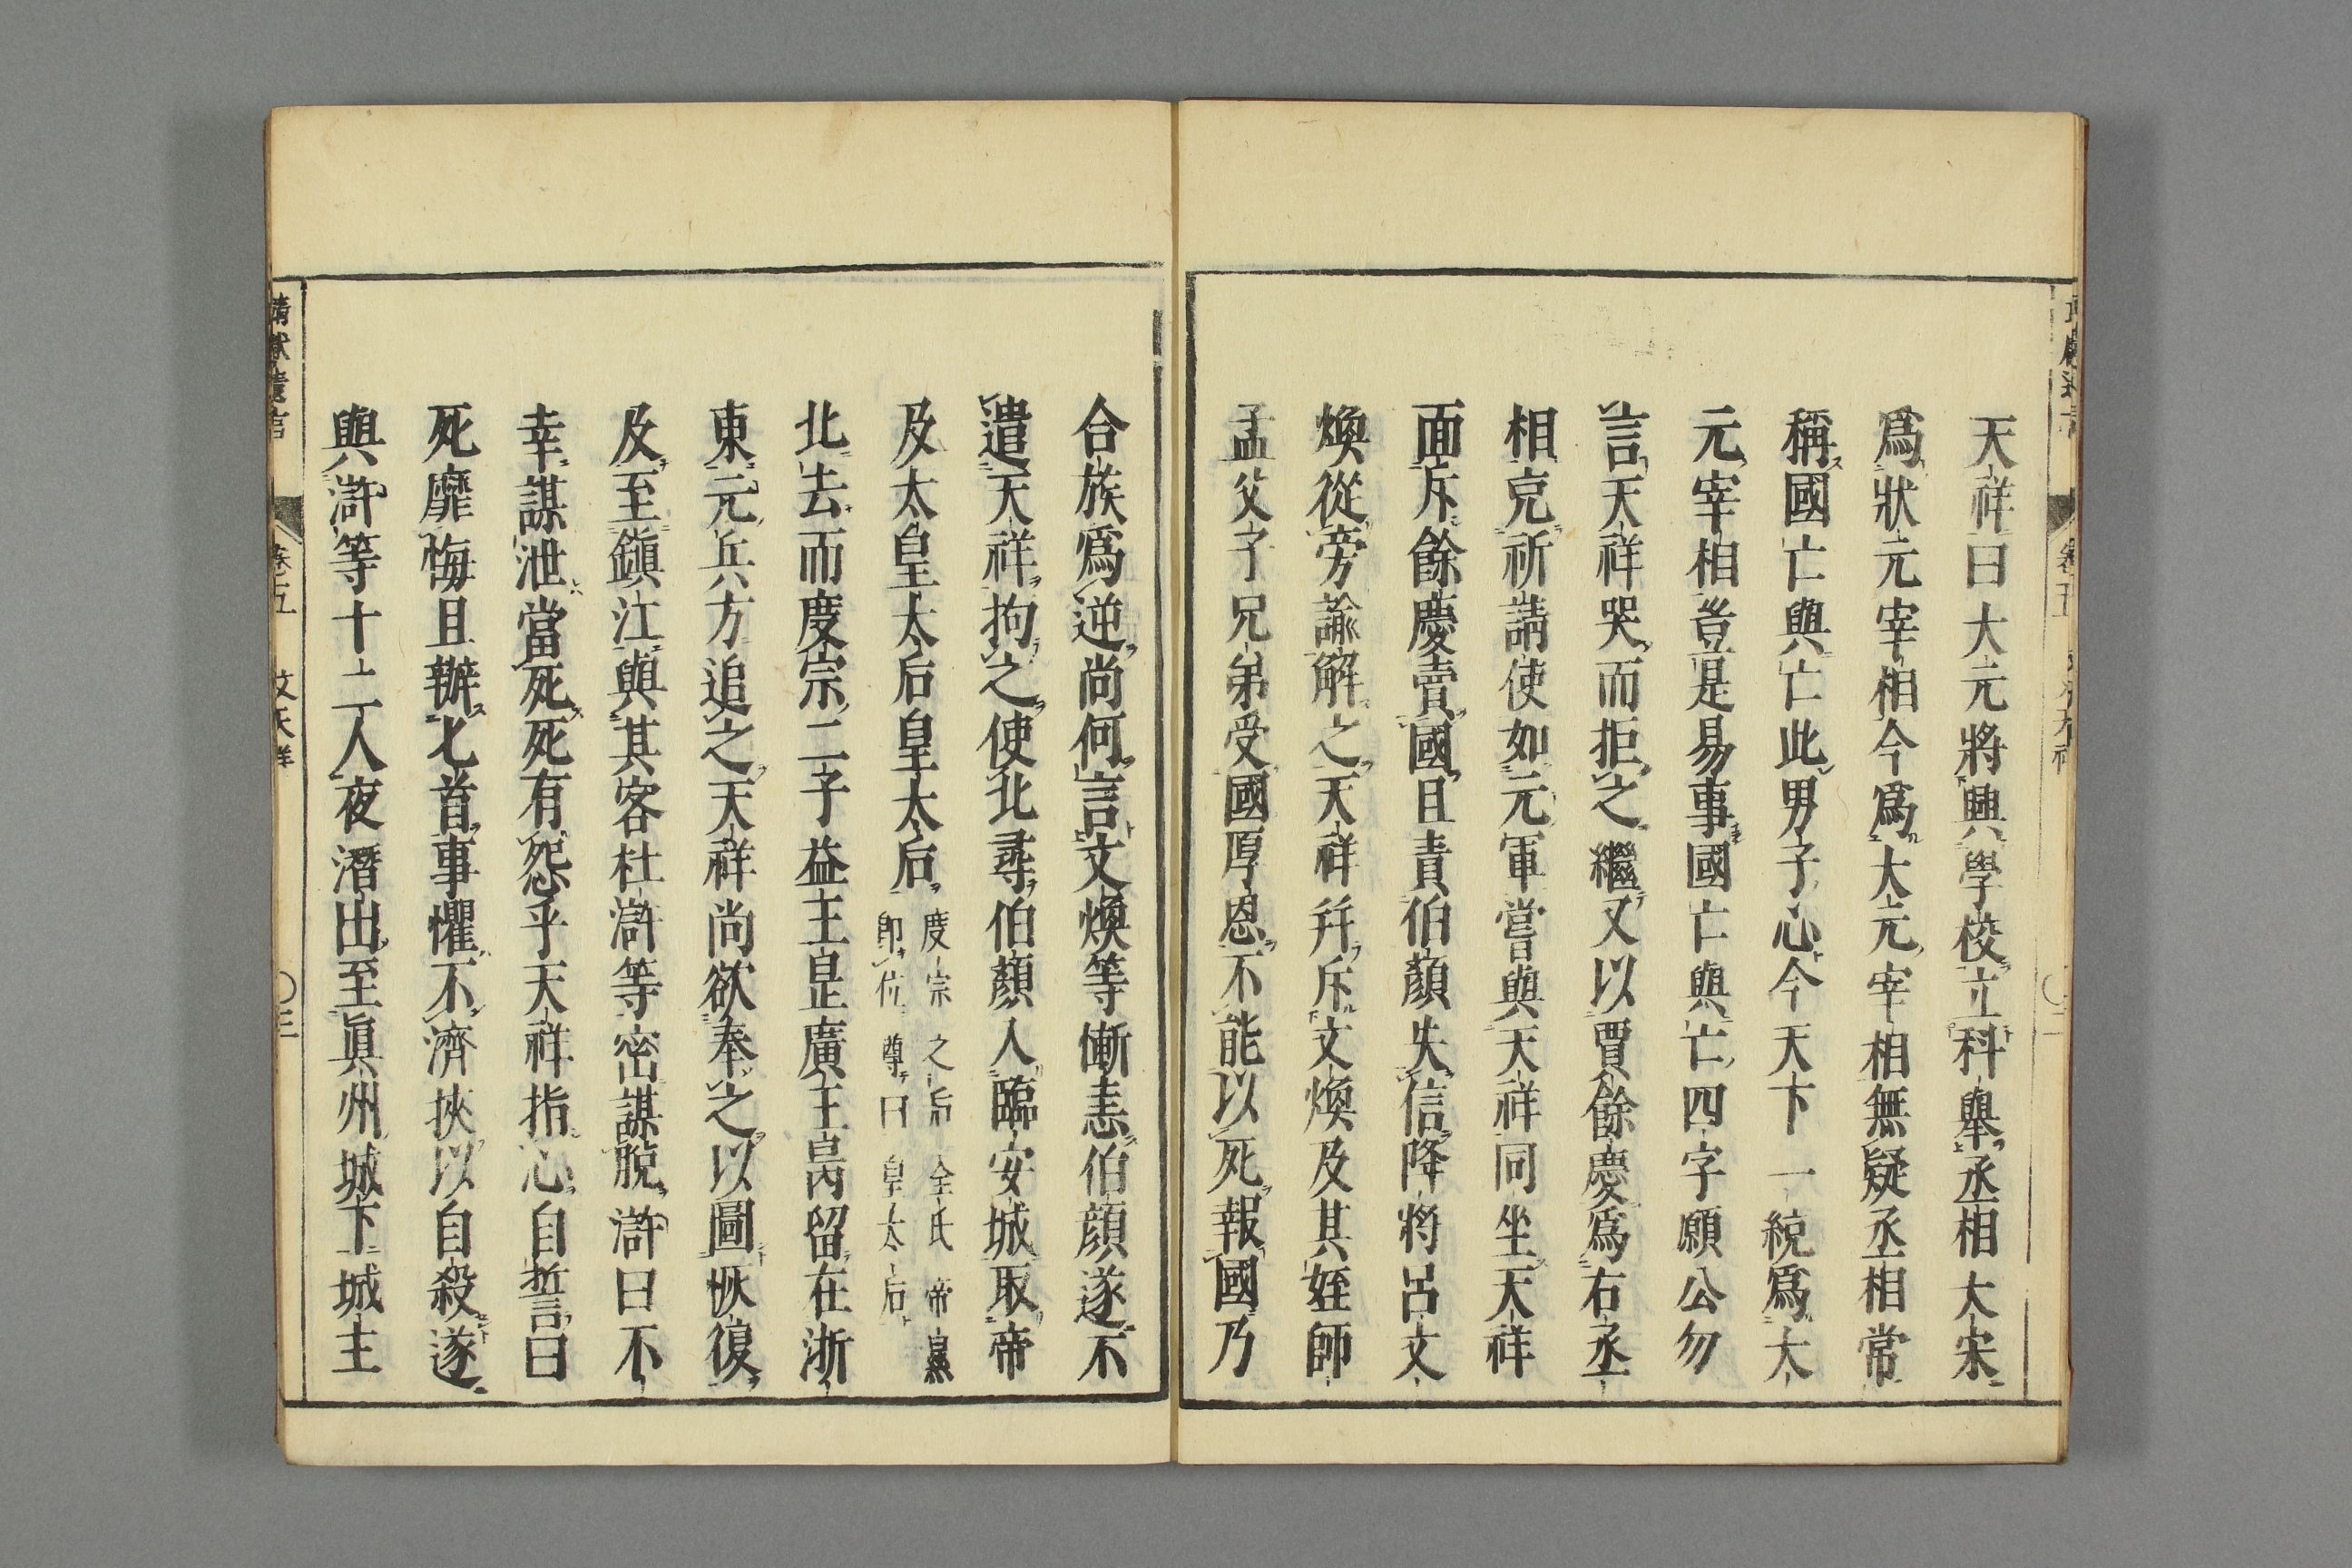 天祥曰大元將興學校立科舉丞相大宋
爲狀元宰相今爲大元宰相無疑丞相常
稱國亡與亡此男子心今天下一統爲大
元宰相豈是易事國亡與亡四字願公勿
言天祥哭而拒之繼又以賈餘慶爲右丞
相克祈請使如元軍嘗與天祥同坐天祥
面斥餘慶賣國且責伯顏失信降將呂文
煥從旁諭解之天祥并斥文煥及其姪師
孟父子兄弟受國厚恩不能以死報國乃
合族爲逆尚何言文煥等慚恚伯顔遂不
遣天祥拘之使北尋伯顏入臨安城取帝
及太皇太后皇太后
度宗之后全氏帝㬎
即位尊曰皇太后
北去而度宗二子益王昰廣王昺留在浙
東元兵方追之天祥尚欲奉之以圖恢復
及至鎭江與其客杜滸等密謀脫滸曰不
幸謀泄當死死有怨乎天祥指心自誓曰
死靡悔且辦匕首事懼不濟挾以自殺遂
與滸等十二人夜潛出至眞州城下城主
靖獻遺言 卷之五 文天祥 〇三